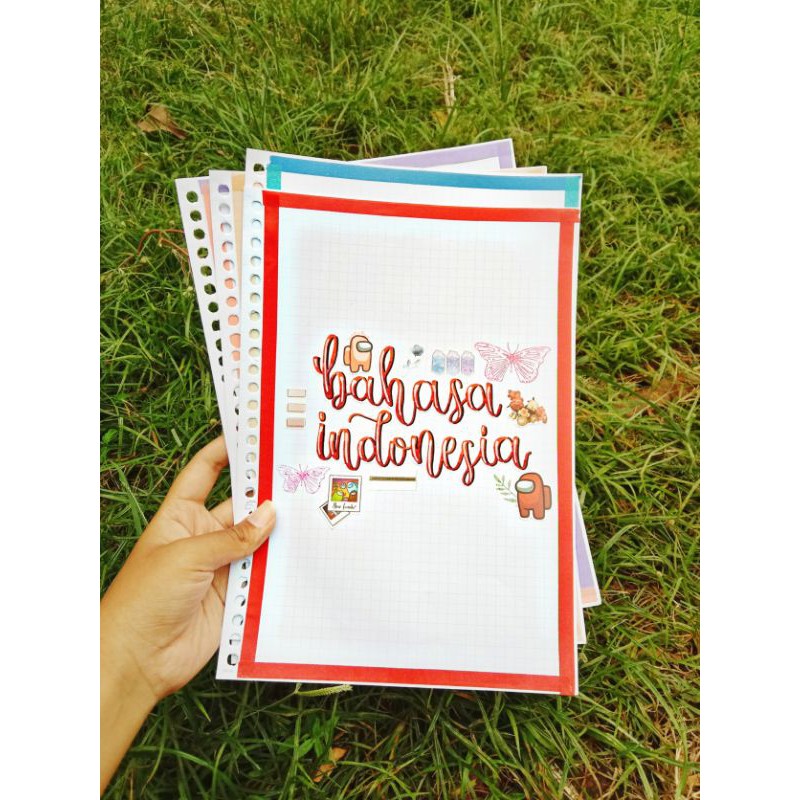 bahasa
indonesia